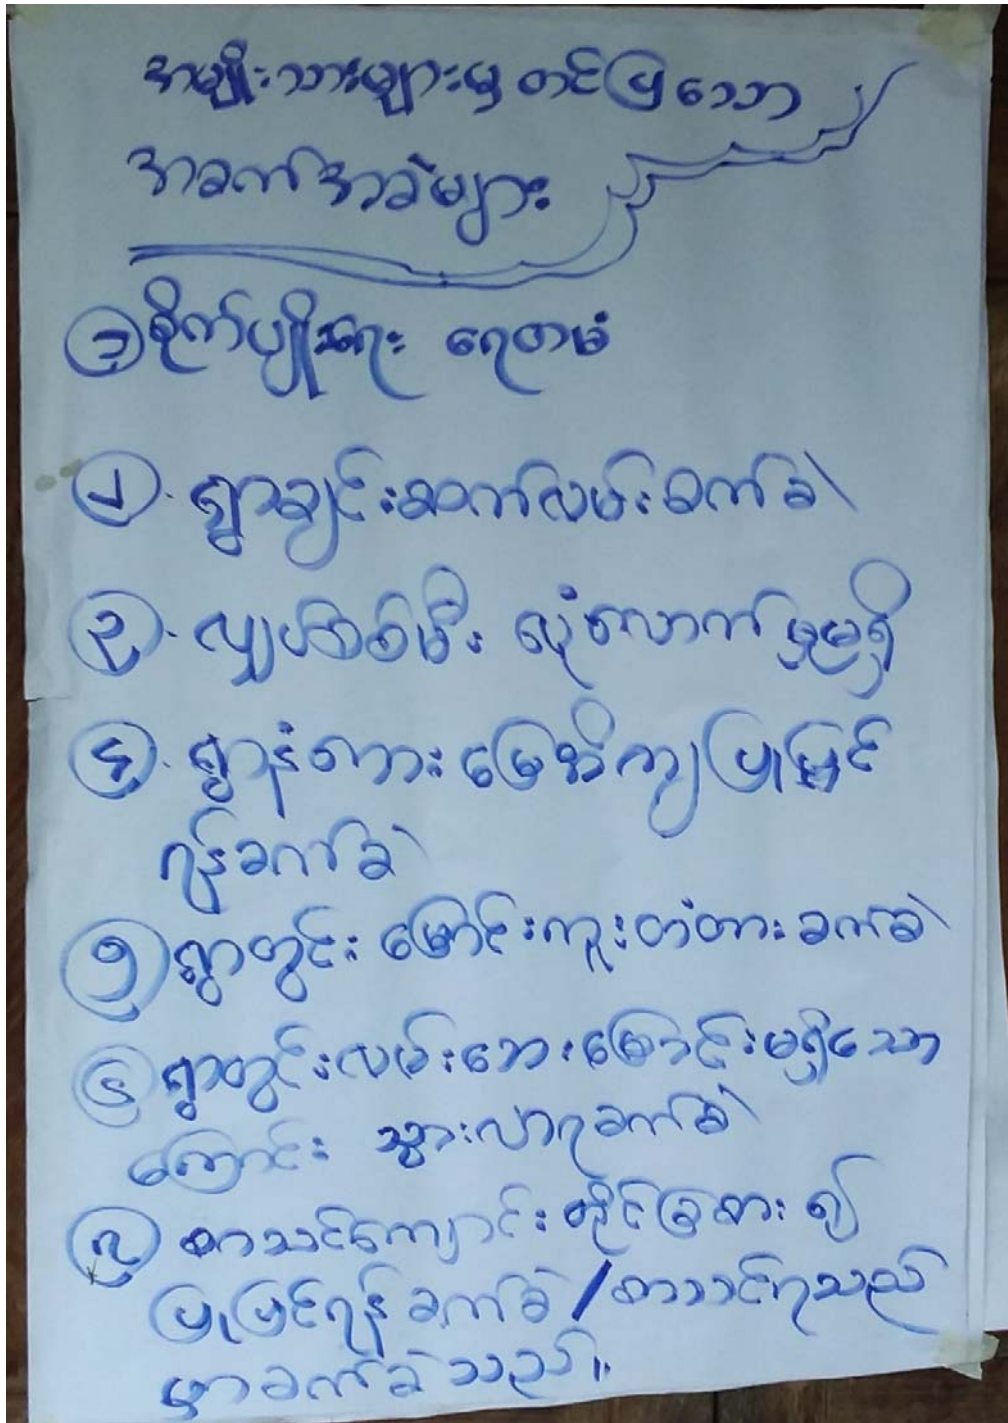 အမျိုးသားများမှ တင်ပြသော
အခက်အခဲများ
၁ စိုက်ပျိုးရေး ရေတမံ
၂. ရွာချင်းဆက်လမ်းခက်ခဲ
၃. လျှပ်စစ်မီး လုံလောက်မှုမရှိ
၄. ရွာနံဘေး မြေအိကျ ပြုပြင်
ရန်ခက်ခဲ
၅ ရွာတွင်း မြောင်းကူးတံတား ခက်ခဲ
၆ ရွာတွင်းလမ်းဘေးမြောင်းမရှိသော
ကြောင်း သွားလာရခက်ခဲ
၇ စာသင်ကျောင်း တိုင်ခြစား ၍
ပြုပြင်ရန် ခက်ခဲ / စာသင်ရသည်
မှာခက်ခဲသည်။